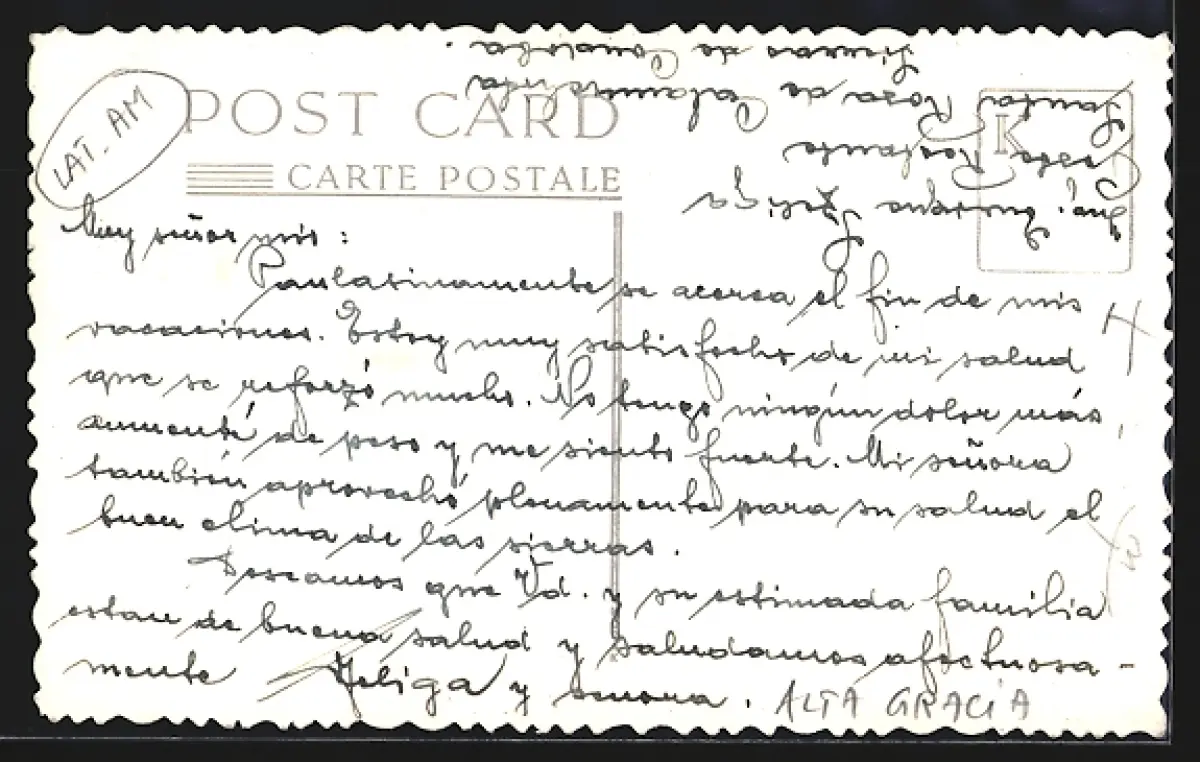 LAT. AM
POST CARD
CARTE POSTALE
K
Muy señor mio:
Paulatinamente se acerca el fin de mis
vacaciones. Estoy muy satisfecho de mi salud
que se reforzó mucho. No tengo ningún dolor más,
aumenté de peso y me siento fuerte. Mi señora
también aprovechó plenamente para su salud el
buen clima de las sierras.
Deseamos que Vd. y su estimada familia
estan de buena salud y saludamos afectuosa-
mente Feliga y señora. ALTA GRACIA
Feliga
Santa Rosa de Calamuchita
Sierras de Cordoba.